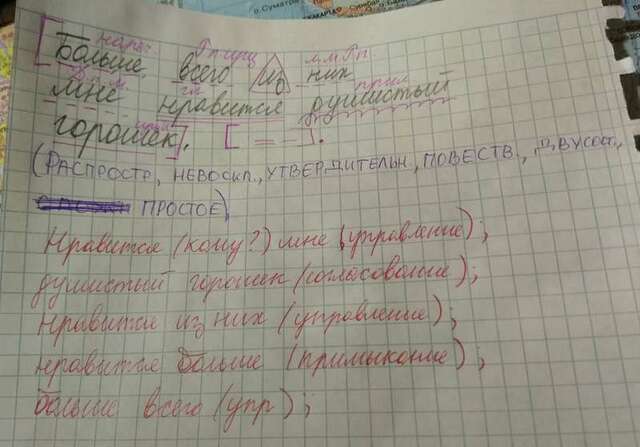 р. Суматра
нареч. Р.п сущ м.м Р.п
[Больше всего из них
Д.п гл прил
мне нравится душистый
сущ
горошек]. [ = — ].
(РАСПРОСТР., НЕВОСКЛ., УТВЕРДИТЕЛЬН., ПОВЕСТВ., ДВУСОСТ.,
ПРОСТОЕ)
Нравится (кому?) мне (управление);
душистый горошек (согласование);
нравится из них (управление);
нравится больше (примыкание);
больше всего (упр);